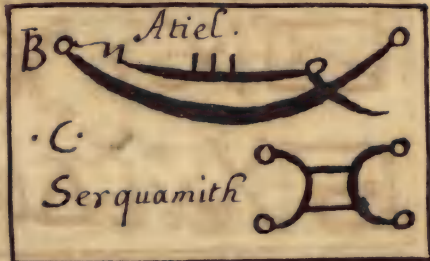 B Atiel.
·C·
Serquamith